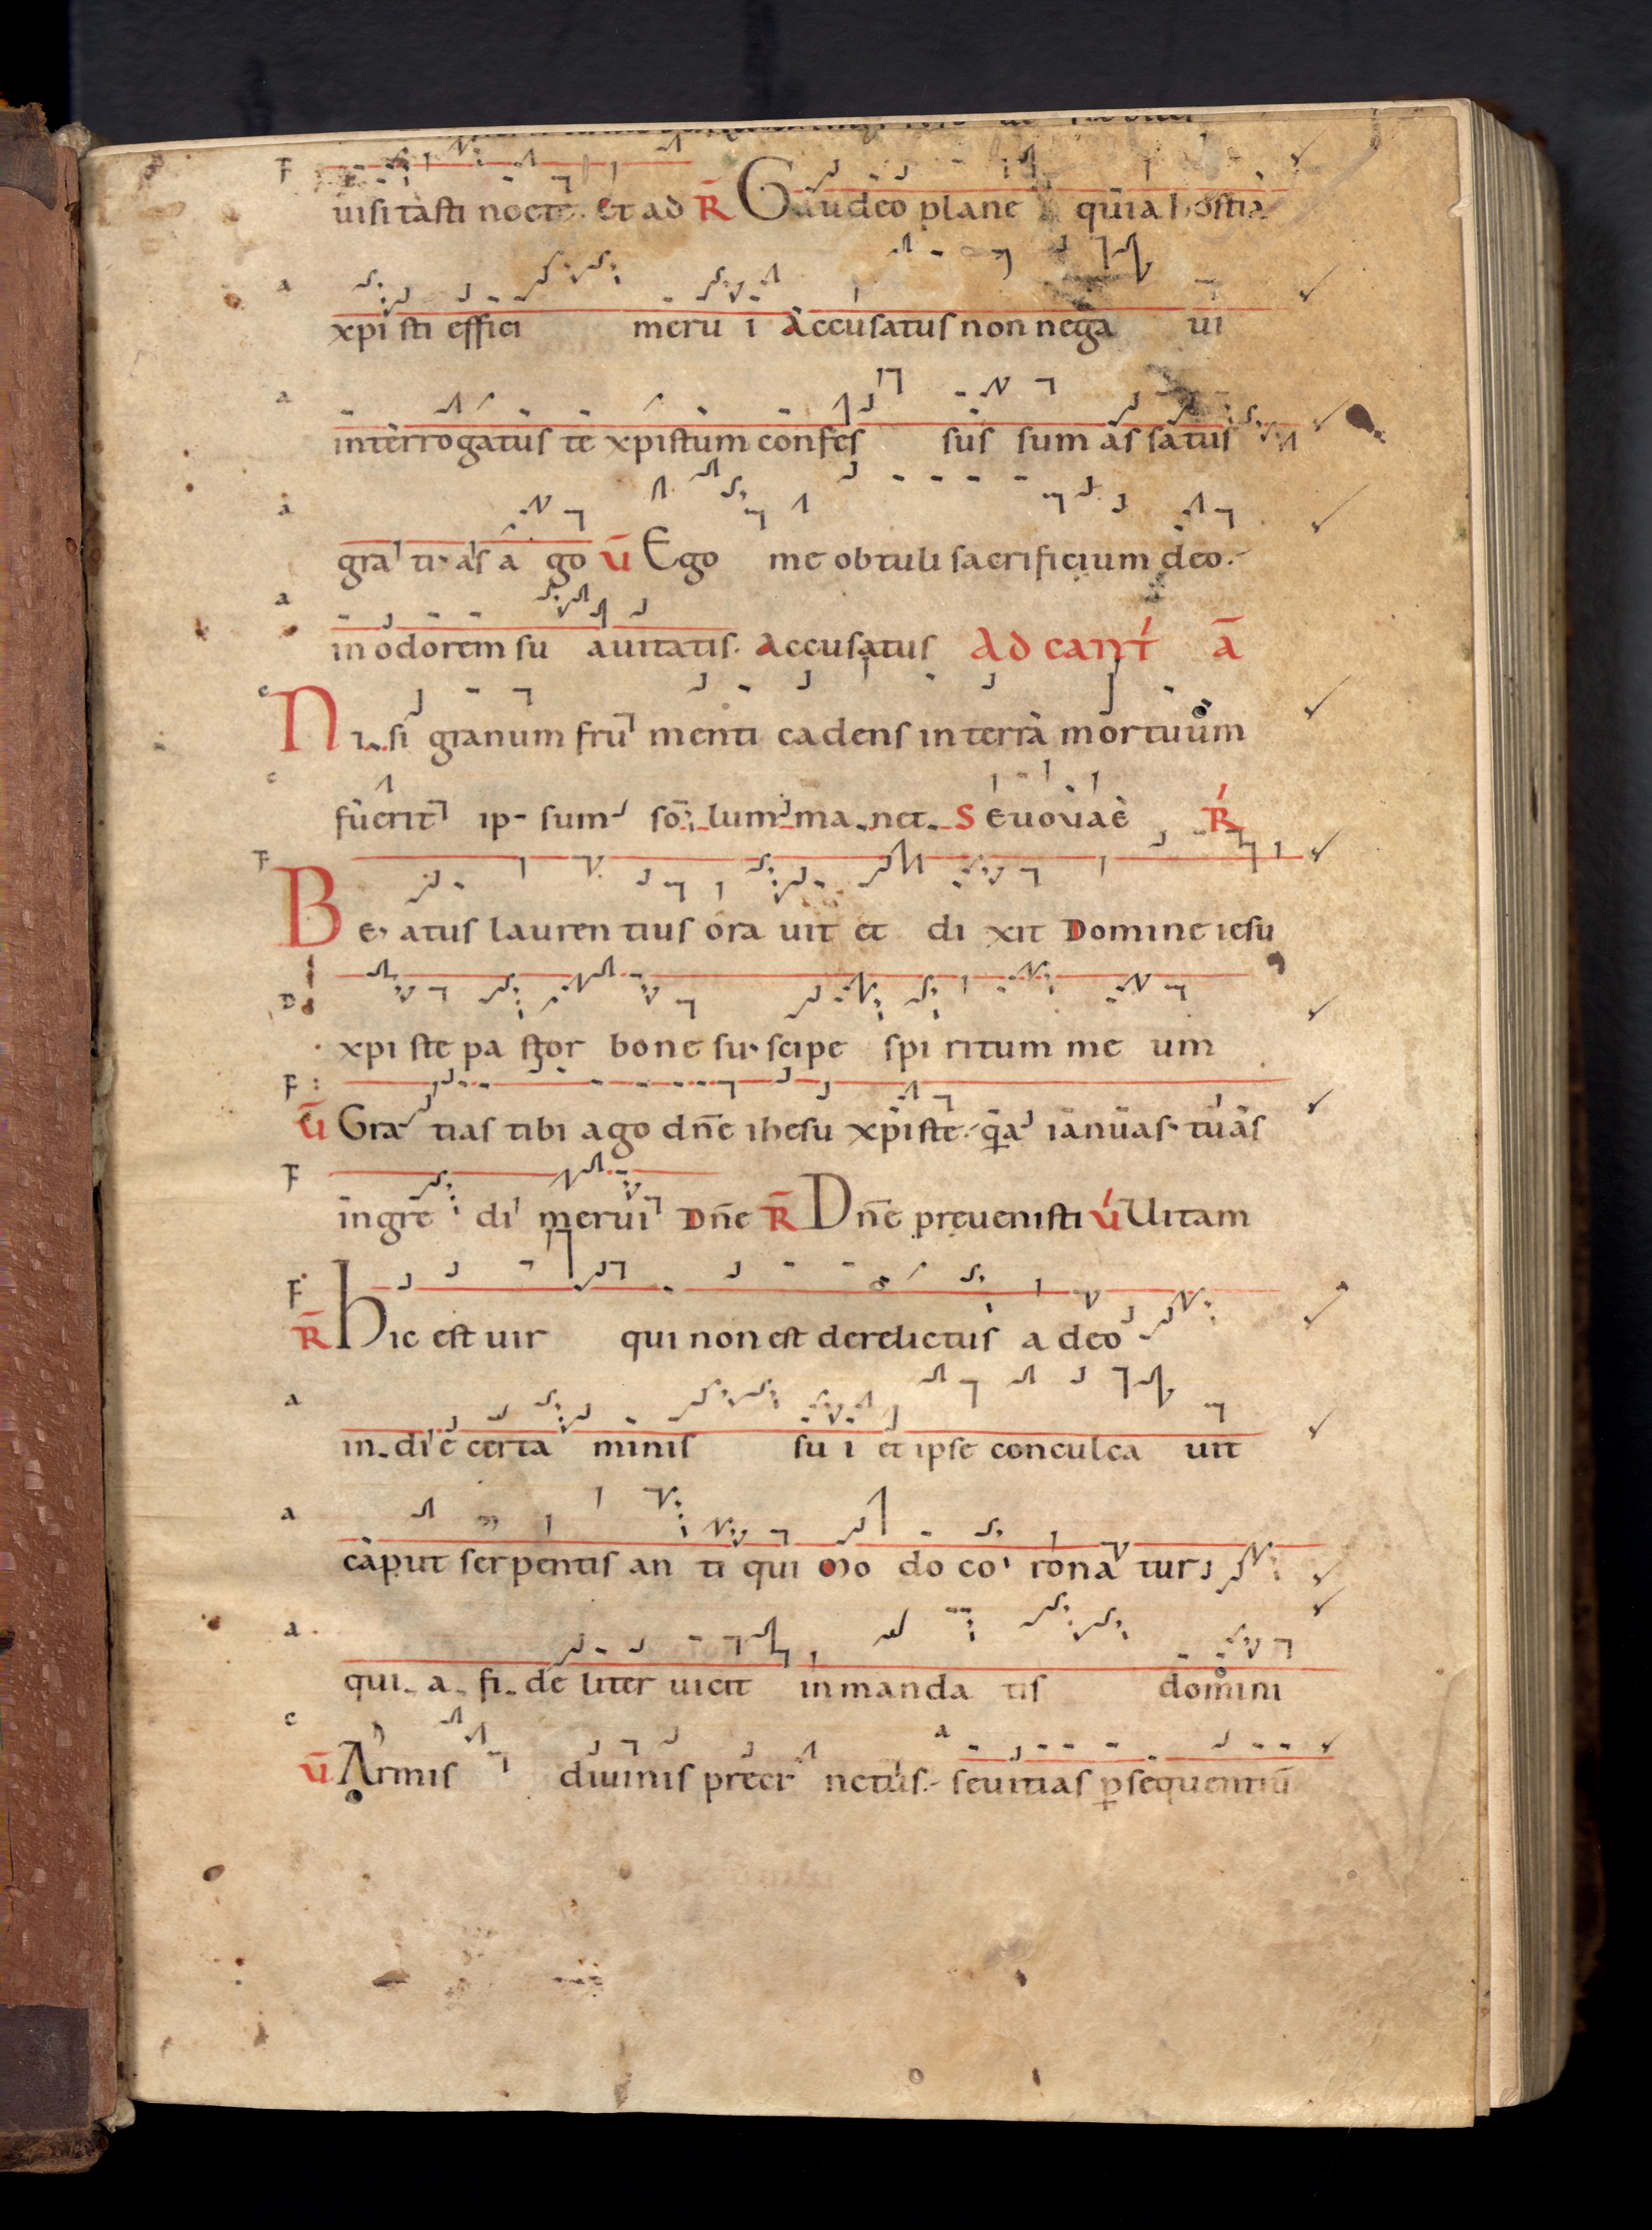 uisitasti nocte. Et ad R̄ Gaudeo plane quia hostia
xpi sti effici meru i Accusatus non nega ui
interrogatus te xpistum confes sus sum as satus
gra ti as a go v̄ Ego me obtuli sacrificium deo.
in odorem su auitatis. Accusatus Ad cant ā
Ni si granum fru menti cadens in terra mortuum
fuerit ip sum so lum ma net. S euouae R
Be atus lauren tius ora uit et di xit Domine iesu
xpi ste pa stor bone su scipe spi ritum me um
v̄ Gra tias tibi ago dn̄e ihesu xpiste. qa ianuas tuas
ingre di merui Dn̄e R̄ Dn̄e preuenisti v Uitam
R̄ Hic est uir qui non est derelictus a deo
in die certa minis su i et ipse conculca uit
caput serpentis an ti qui Mo do co rona tur
qui a fi de liter uicit in manda tis domini
v̄ Armis diuinis precr nctus. seuitias psequentiū